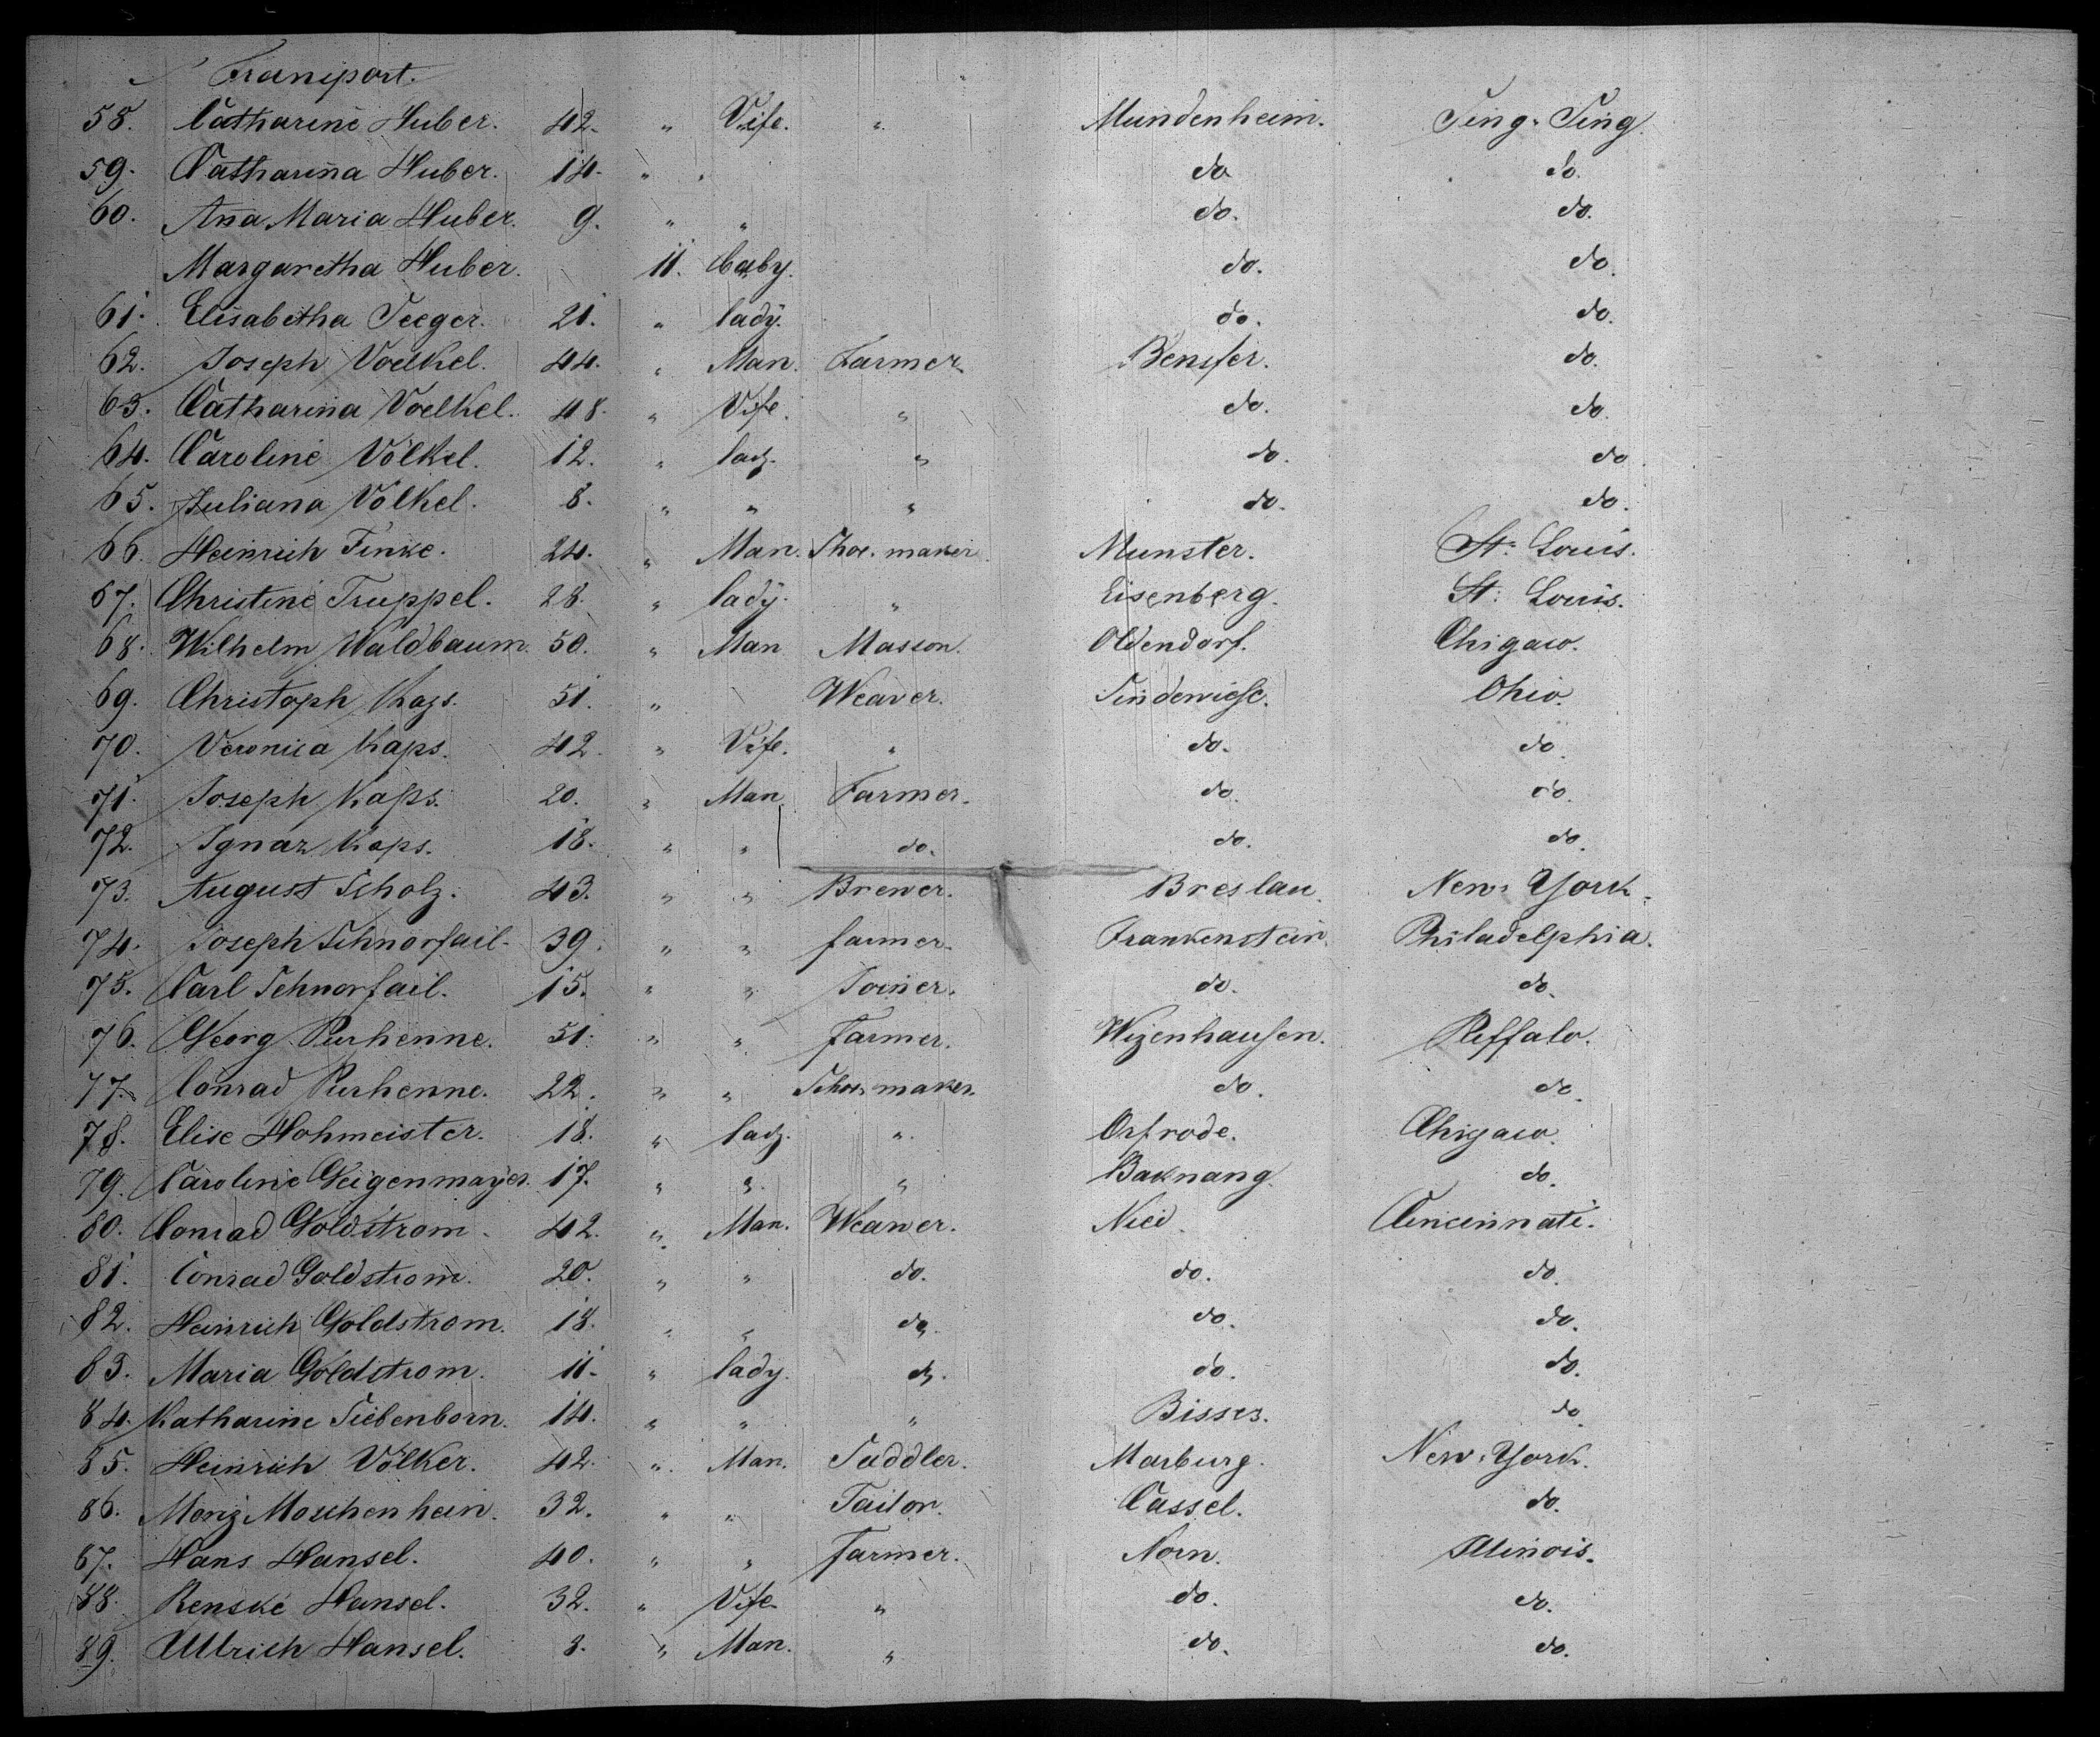 Transport.
58. Catharine Huber. 42. " Vife. " Mundenheim. Sing-Sing.
59. Catharina Huber. 14. " " do do.
60. Anna Maria Huber. 9. " " do. do.
Margaretha Huber. 11. baby. do. do.
61. Elisabetha Seeger. 21. " lady. do. do.
62. Joseph Voelkel. 44. " Man. Farmer. do.
63. Catharina Voelkel. 48. " Vife. " do. do.
64. Caroline Völkel. 12. " lady. " do. do.
65. Juliana Völkel. 8. " " " do. do.
66. Heinrich Finke. 24. " Man. Shoe-maker. Munster. St. Louis.
67. Christine Truppel. 28. " lady. " Eisenberg. St. Louis.
68. Wilhelm Waldbaum. 50. " Man Masson. Oldendorf. Chigaco.
69. Christoph Kaps. 51. " Weaver. Lindewiese. Ohio.
70. Veronica Kaps. 42. " Vife. " do. do.
71. Joseph Kaps. 20. " Man. Farmer. do. do.
72. Ignaz Kaps. 18. " " do. do. do.
73. August Scholz. 43. " " Brewer. Breslau. New-York.
74. Joseph Schnorfail. 39. " " farmer. Frankenstein. Philadelphia.
75. Carl Schnorfail. 15. " " Joiner. do. do.
76. Georg Purhenne. 51. " " farmer. Wizenhausen. Buffalo.
77. Conrad Purhenne. 22. " " Schoe-maker. do. do.
78. Elise Hohmeister. 18. " lady. " Osfrode. Chigaco.
79. Caroline Geigenmayer. 17. " " " Baknang. do.
80. Conrad Goldstrom. 42. " Man. Weawer. Nied. Cincinnati.
81. Conrad Goldstrom. 20. " " do. do. do.
82. Heinrich Goldstrom. 18. " " do. do. do.
83. Maria Goldstrom. 11. " lady. do. do. do.
84. Katharine Siebenborn. 14. " " " Bisses. do.
85. Heinrich Völker. 42. " Man. Saddler. Marburg. New-York.
86. Moriz Moschenhein. 32. " " Tailor. Cassel. do.
87. Hans Hansel. 40. " " farmer. Norn. Illinois.
88. Renske Hansel. 32. " Vife. " do. do.
89. Ullrich Hansel. 3. " Man. " do. do.